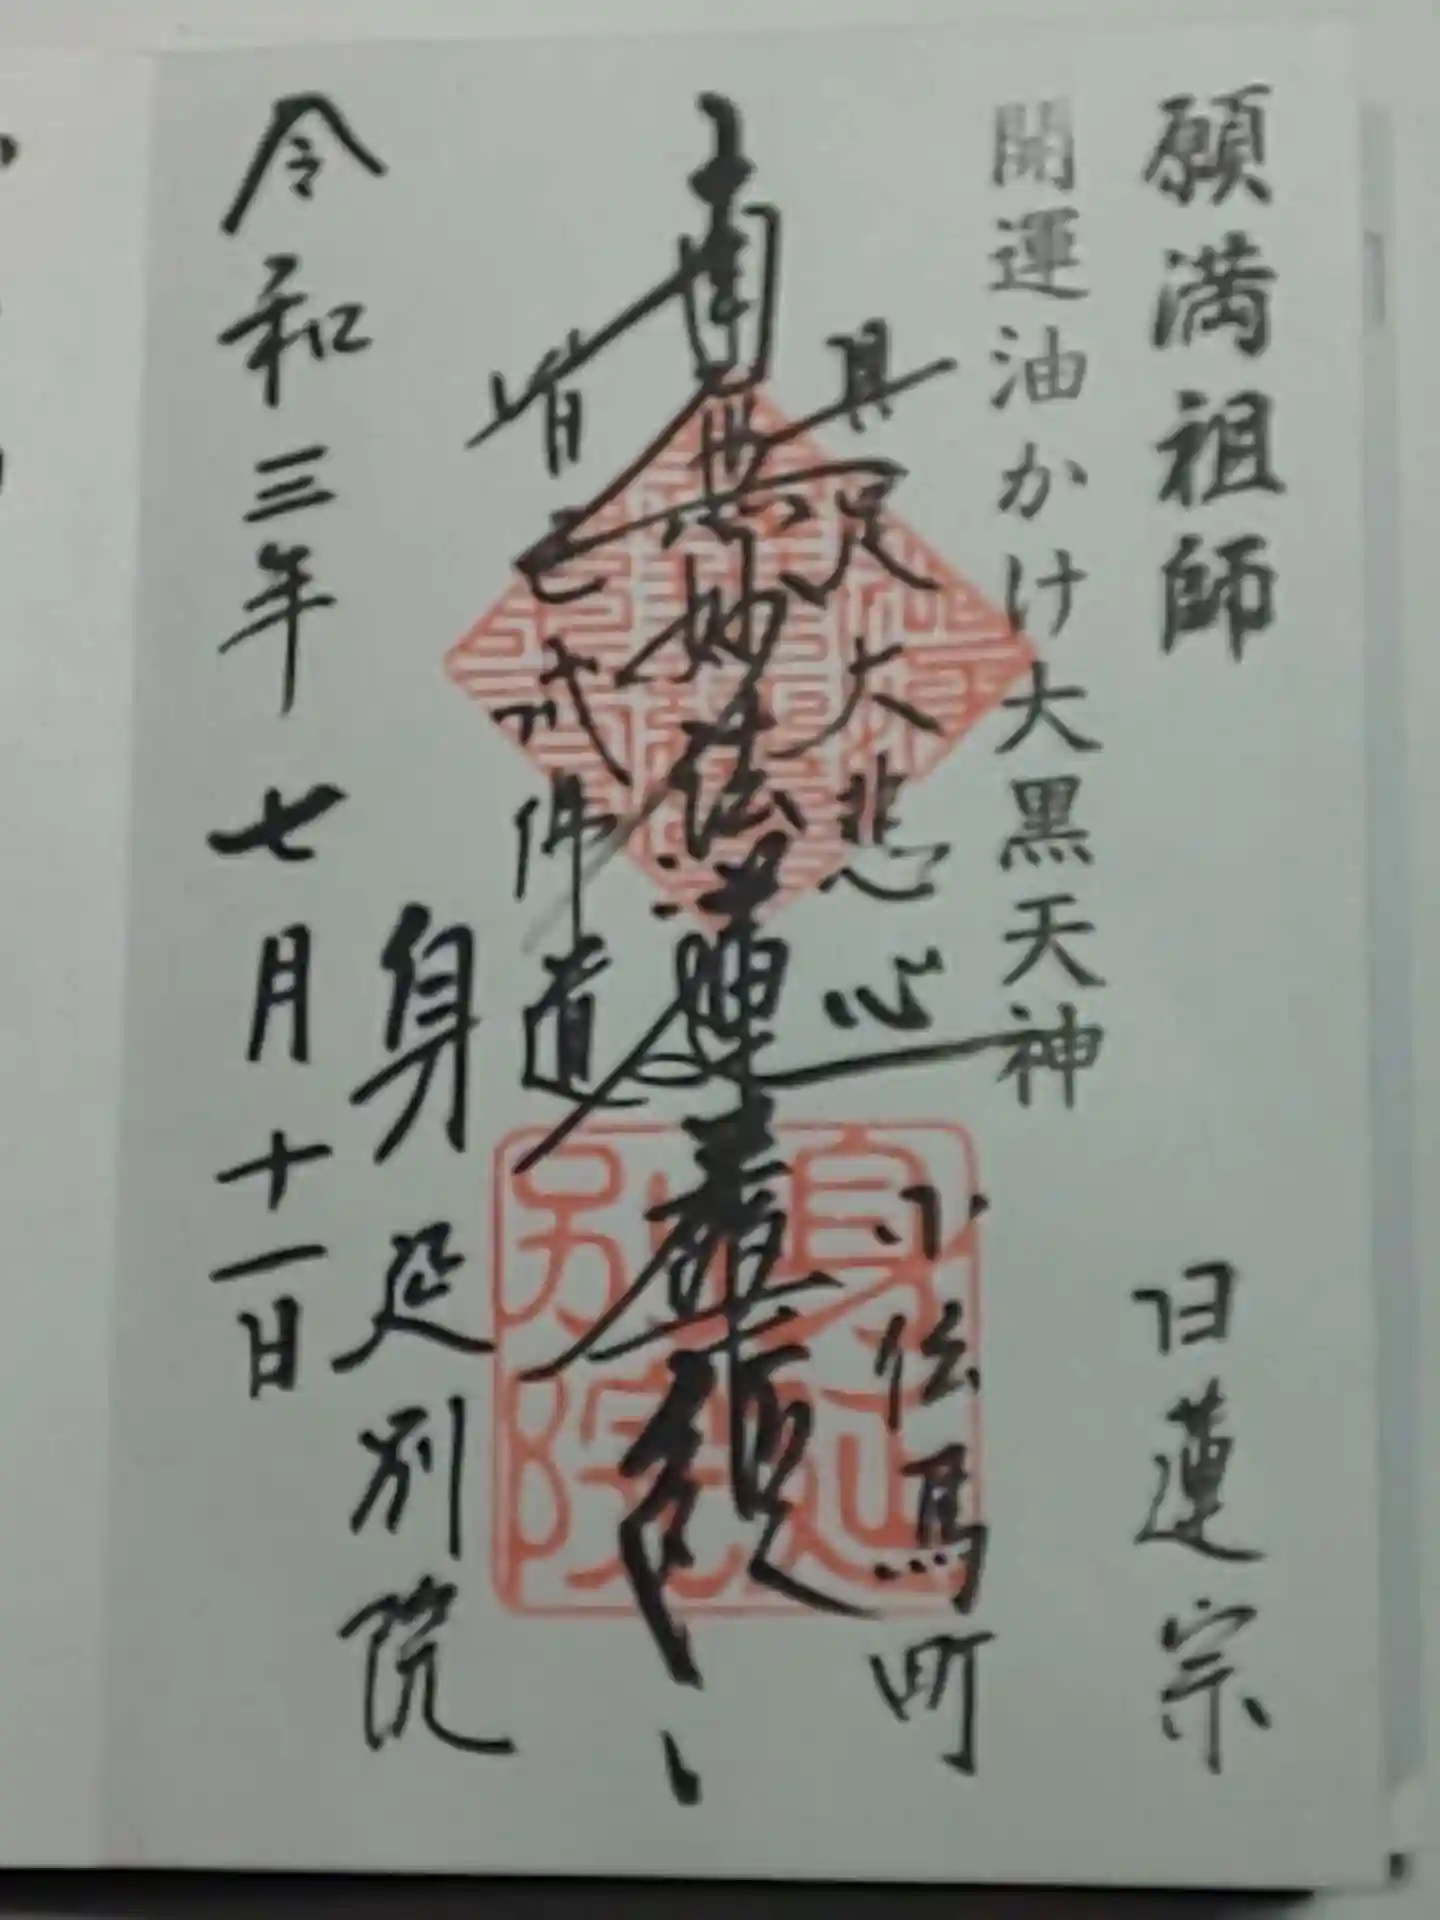 願満祖師
日蓮宗
開運油かけ大黒天神
小伝馬町
具足大悲心
南無妙法蓮華経
皆已成佛道
身延別院
令和三年七月十一日
身延
別院